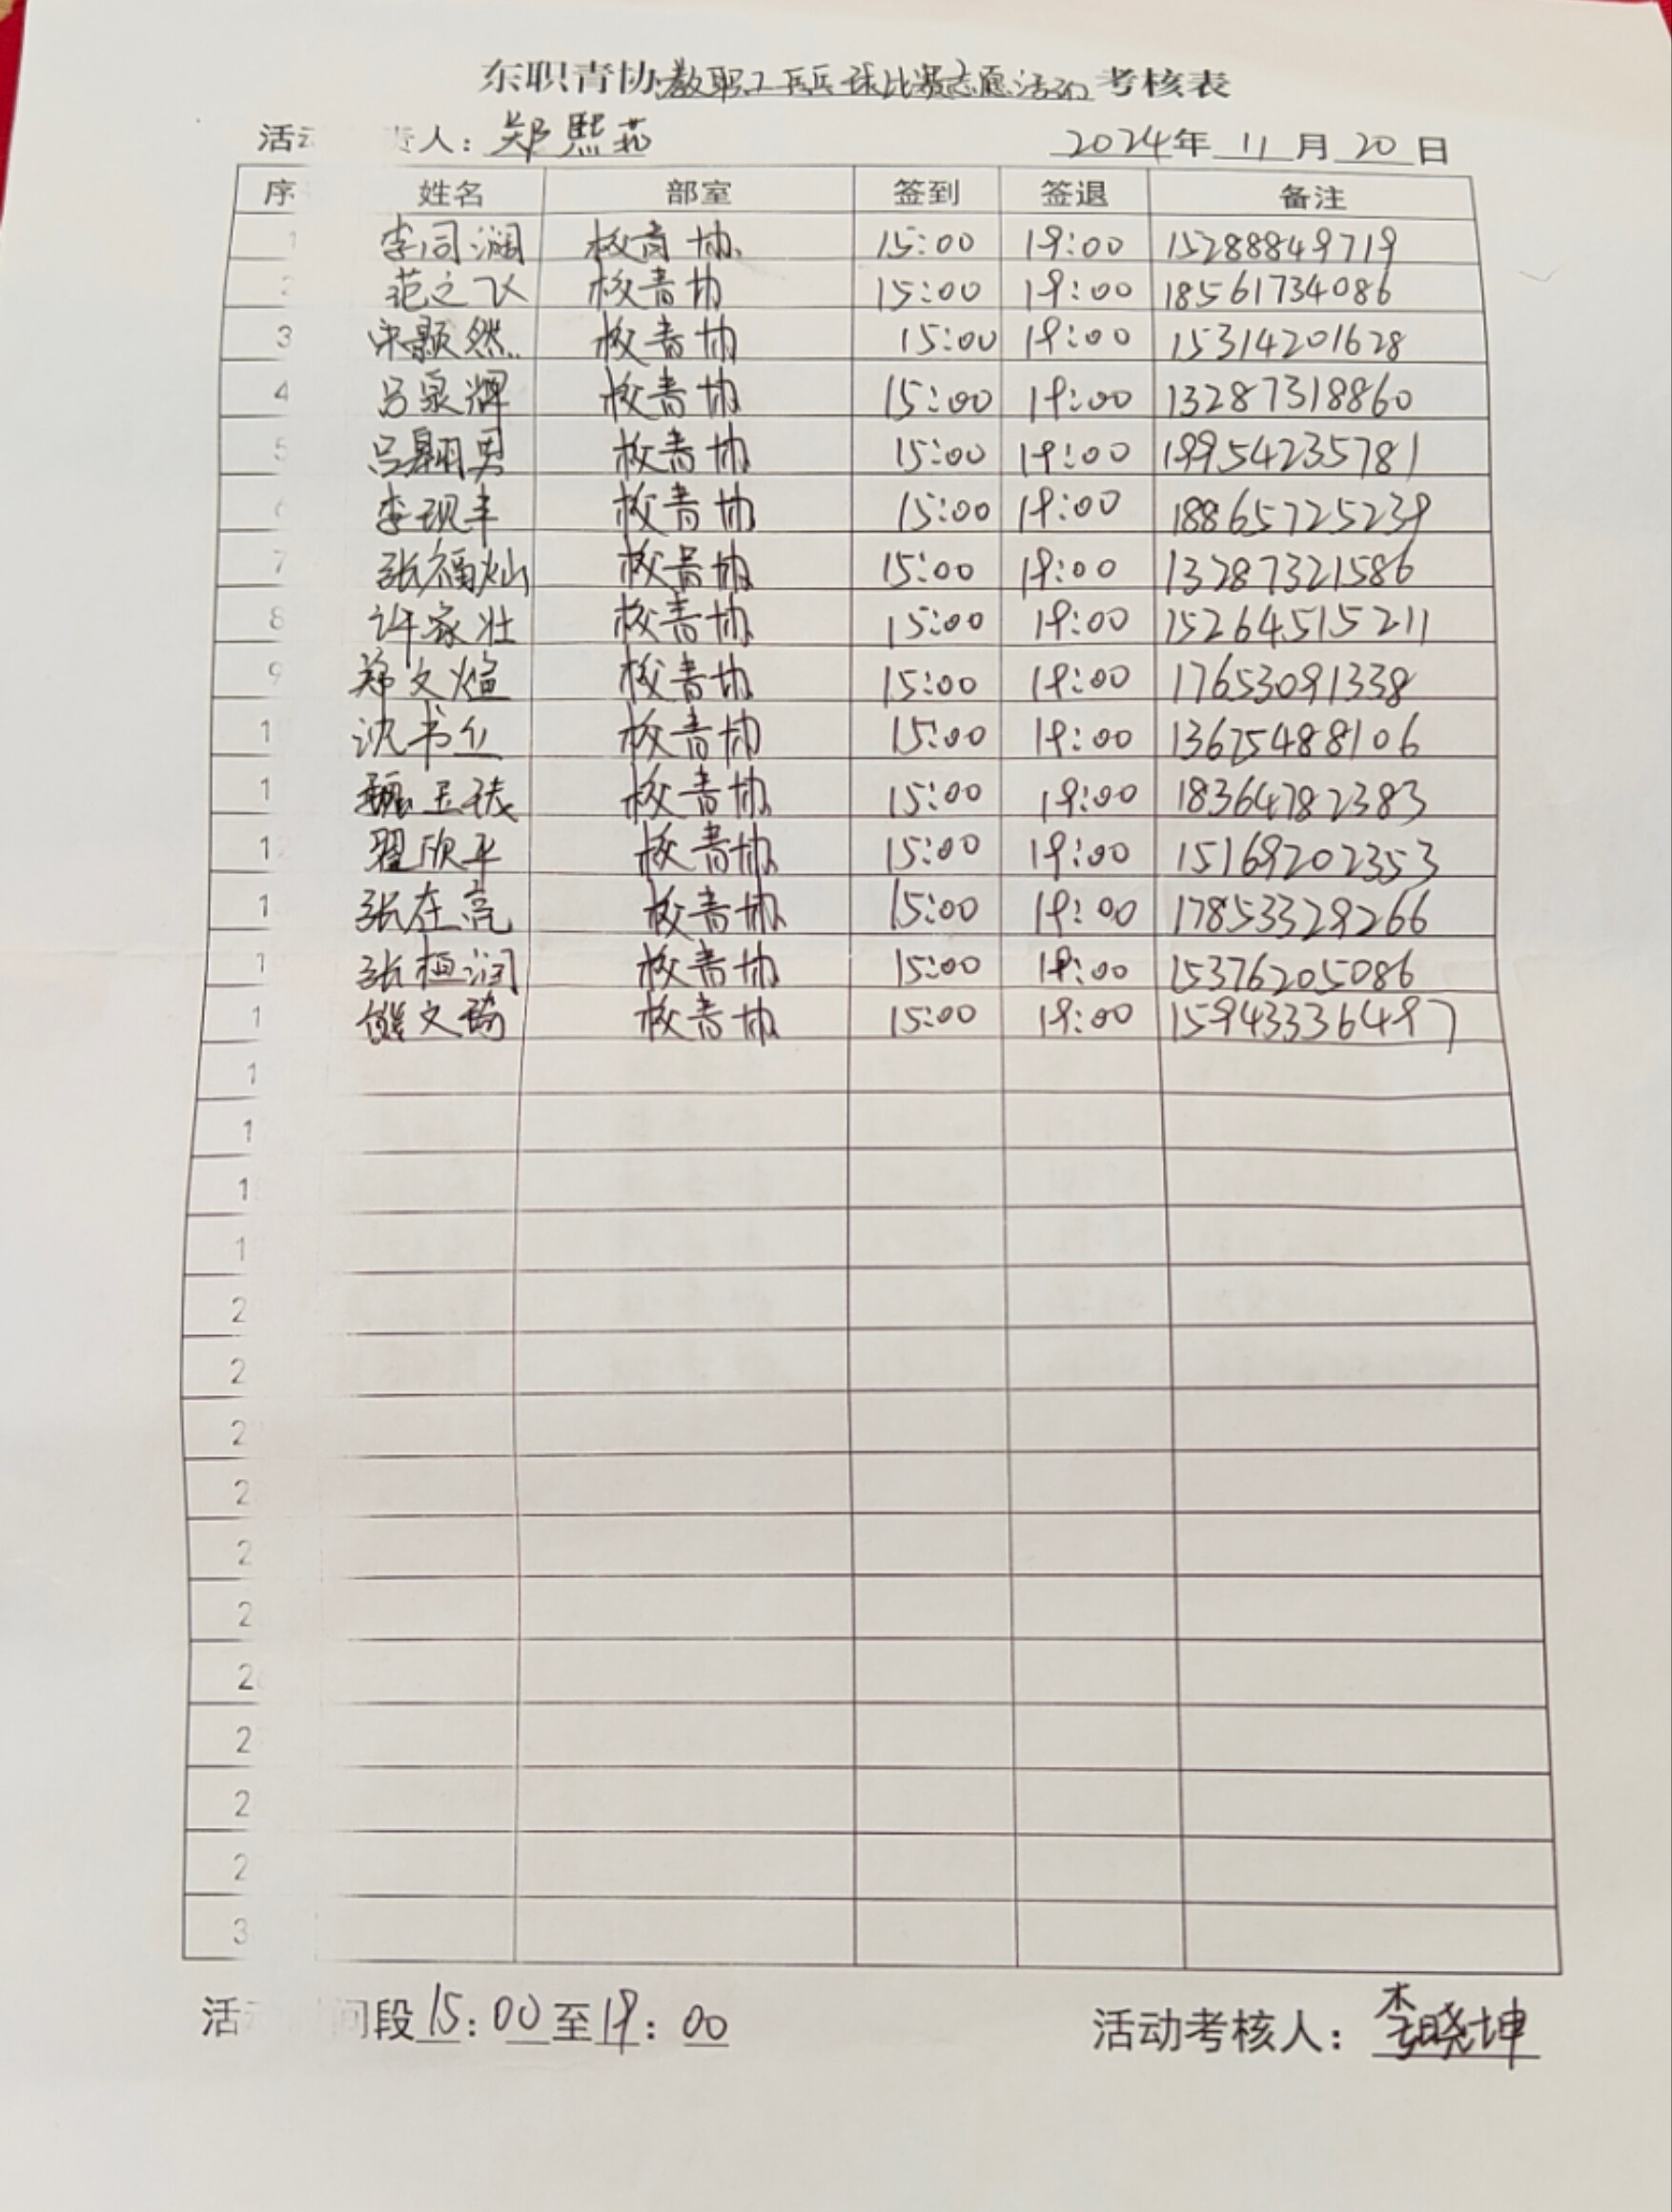 东职青协教职工乒乓球比赛志愿活动考核表
活动 责人：郑熙 2024年 11 月 20 日
序 姓名 部室 签到 签退 备注
1 李同润 校青协 15:00 19:00 15288849719
2 范之飞 校青协 15:00 19:00 18561734086
3 宋颢然 校青协 15:00 19:00 15314201628
4 吕泉辉 校青协 15:00 19:00 13287318860
5 吕翱男 校青协 15:00 19:00 19954235781
6 李现丰 校青协 15:00 19:00 18865725239
7 张福灿 校青协 15:00 19:00 13287321586
8 许家壮 校青协 15:00 19:00 15264515211
9 郑文焰 校青协 15:00 19:00 17653091338
1 沈书 校青协 15:00 19:00 13675488106
1 魏玉 校青协 15:00 19:00 18364782383
1 翟欣平 校青协 15:00 19:00 15169202353
1 张在亮 校青协 15:00 19:00 17853329266
1 张桓润 校青协 15:00 19:00 15376205086
1 熊文琦 校青协 15:00 19:00 15943336497
1
1
1
1
2
2
2
2
2
2
2
2
2
2
3
活动 间段 15：00 至 19：00 活动考核人：李晓坤